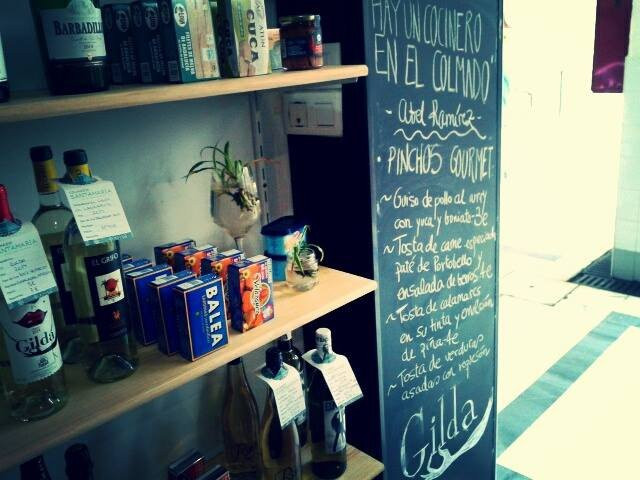 BARBADILLO
CUCA
HAY UN COCINERO
EN EL COLMADO"
- Abel Ramírez -
• PINCHOS GOURMET
~ Guiso de pollo al curry
con yuca y boniato-3e
~ Tosta de carne especiada,
paté de Portobello y
ensalada de berros 4e
~ Tosta de calamares
en su tinta y emulsión
de piña-4e
~ Tosta de verduras
asadas con
Gilda
SANTAMARÍA
SANTAMARÍA
EL GRIFO
Gilda
BALEA